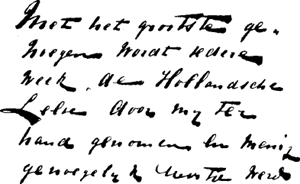 Met het grootste ge-
noegen wordt iedere
week de Hollandsche
Lelie door my ter
hand genomen en menig
genoegelyk uurtje werd